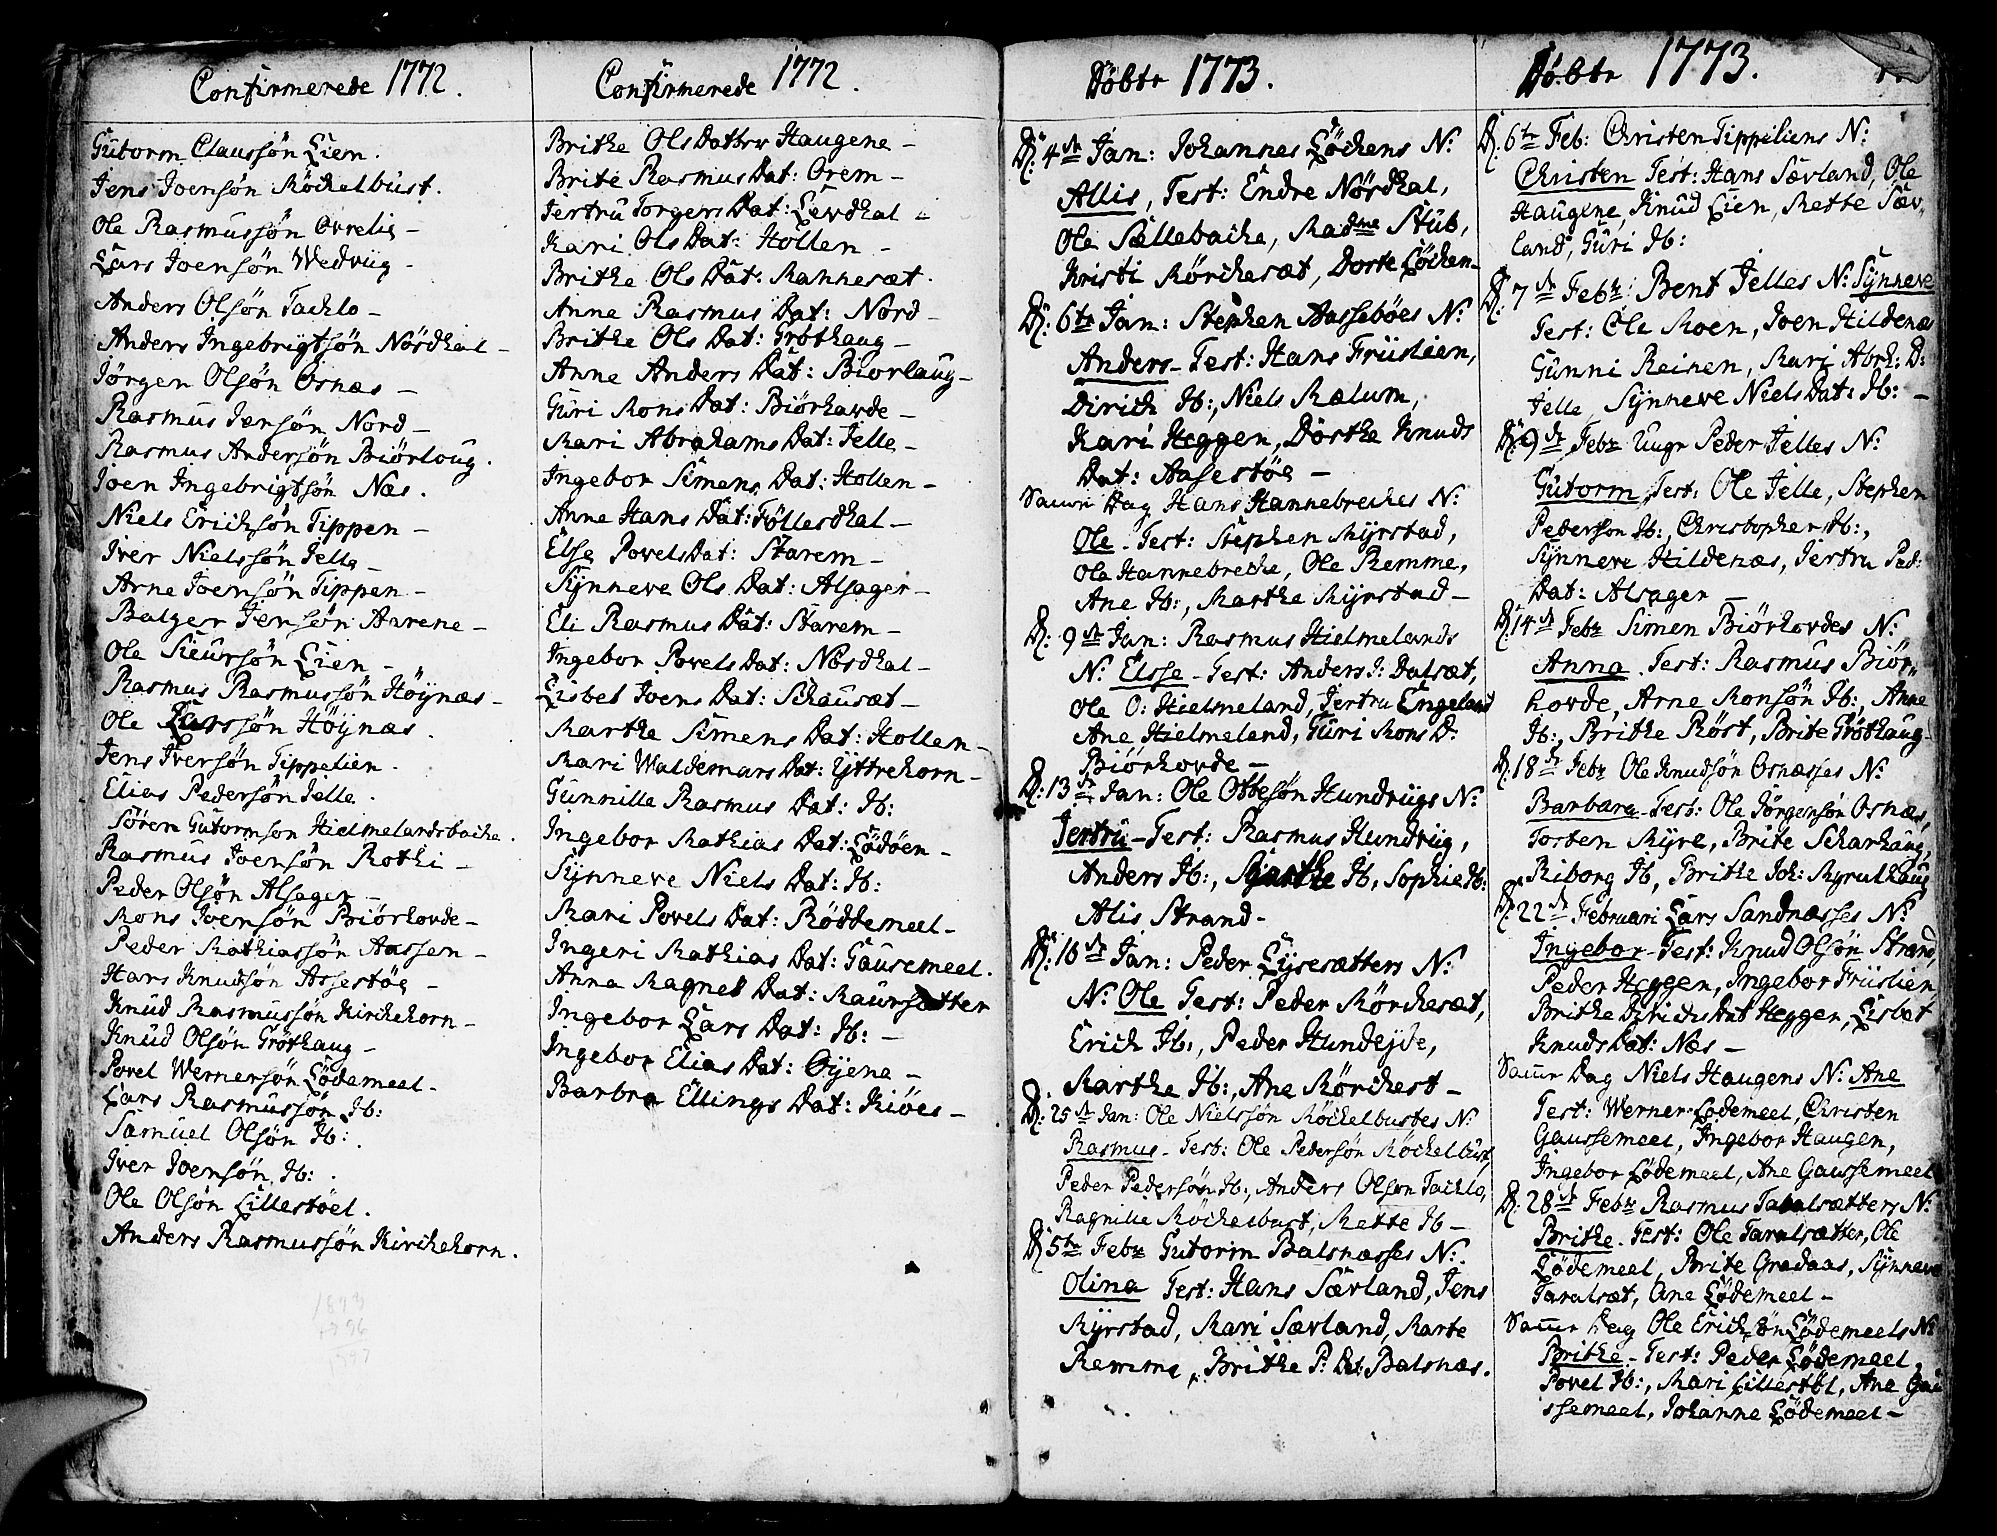 Confirmerede 1772.
Gutorm Claussøn Lien.
Jens Joensøn Röckelbust.
Ole Rasmussøn Ovrelie –
Lars Joensøn Wedvug –
Anders Olsøn Tacklo –
Anders Ingebrigtsøn Nördhal –
Jørgen Olsøn Osnæs –
Rasmus Jensøn Nord –
Rasmus Andersøn Biörloug.
Joen Ingebrigtsøn Næs.
Niels Ericksøn Tippen –
Iver Nielssøn Jelle –
Arne Joensøn Tippen –
Balzer Jensøn Aurene –
Ole Sieursøn Lien –
Rasmus Rasmussøn Höynæs –
Ole Larssøn Höynæs.
Jens Iversøn Tippelien.
Elias Pedersøn Jelle.
Sören Gutormsøn Hielmelandsbacke.
Rasmus Joensøn Rothi –
Peder Olsøn Alsager –
Mons Joensøn Biörhovde –
Peder Mathiassøn Aassen –
Hans Knudsøn Assestöe –
Knud Rasmussøn Kirckehorn –
Knud Olsøn Gröthaug –
Povel Wernersøn Lödemeel –
Lars Rasmussøn Ib:
Samuel Olsøn Ib:
Iver Joensøn Ib:
Ole Olsøn Lillestöel.
Anders Rasmussøn Kirckehorn.
Confirmerede 1772.
Brithe Ols Datter Haugene –
Brite Rasmus Dat: Orem –
Jertru Torgers Dat: Lerdhal –
Kari Ols Dat: Hollen –
Brithe Ols Dat: Rannesæt.
Anne Rasmus Dat: Nord –
Brithe Ols Dat: Gröthaug –
Anne Anders Dat: Biorlaug –
Guri Mons Dat: Biörhovde –
Mari Abrahams Dat: Jelle –
Ingebor Simens Dat: Hollen –
Anne Hans Dat: Föllesdhal –
Else Povels Dat: Starem –
Synneve Ols Dat: Alsager –
Eli Rasmus Dat: Starem –
Ingebor Povels Dat: Nordhal –
Lisbet Joens Dat: Schausæt –
Marthe Simens Dat: Hollen –
Mari Waldemars Dat: Yttrehorn –
Gunnille Rasmus Dat: Ib:
Ingebor Mathias Dat: Lödöen –
Synneve Niels Dat: Ib:
Mari Povels Dat: Röddemeel –
Ingeri Mathias Dat: Gausemeel.
Anna Magnes Dat: Maursetter
Ingebor Lars Dat: Ib: –
Ingebor Elias Dat: Öyene –
Barbra Ellings Dat: Kiöes –
Döbte 1773.
D: 4de Jan: Johannes Löckens N:
Allis, Test: Endre Nördhal,
Ole Sællebacke, Madme Stub,
Kristi Mörckesæt, Dorte Löcken –
D: 6te Jan: Stephen Aasseböes N:
Anders – Test: Hans Friislien,
Dirich Ib:, Niels Mælum,
Kari Heggen, Dörthe Knuds
Dat: Aasestöe –
Samme Dag Hans Hannebreckes N:
Ole – Test: Stephen Myrstad,
Ole Hannebrecke, Ole Remme,
Ane Ib:, Marthe Myrstad –
D: 9de Jan: Rasmus Hielmelands
N: Elsse – Test: Anders J: Dalsæt,
Ole O: Hielmeland, Jertru Engeland
Ane Hielmeland, Guri Mons D:
Biörhovde –
D: 13de Jan: Ole Ottesøn Hundvugs N:
Jertru – Test: Rasmus Hundvug,
Anders Ib:, Marthe Ib, Sophie Ib:
Alis Strand –
D: 16de Jan: Peder Lysesætters N:
N: Ole Test: Peder Mörckesæt,
Erich Ib:, Peder Hundejde,
Marthe Ib:, Ane Mörckest –
D: 25de Jan: Ole Nielssøn Möckelbustes N:
Rasmus – Test: Ole Pedersøn Möckelbust,
Peder Pedersøn Ib:, Anders Olsøn Tacklo,
Ragnille Möckelbust, Mette Ib –
D: 5te Febr Gutorm Balsnæsses N:
Olina Test: Hans Særland, Jens
Myrstad, Mari Særland, Marte
Remme, Brithe P: Dat: Balsnæs.
Döbte 1773.
D: 6te Feb: Christen Tippeliens N:
Christen Test: Hans Særland, Ole
Haugene, Knud Lien, Mette Sær,,
land, Guri Ib:
D: 7de Febr: Bent Jelles N: Synneve
Test: Ole Moen, Joen Hildenæs
Gunni Reinen, Mari Abrh: D:
Jelle, Synneve Niels Dat: Ib: –
D: 9de Febr Ungr Peder Jelles N:
Gutorm, Test: Ole Jelle, Stephen
Pedersøn Ib:, Christopher Ib:,
Synneve Hildenæs, Jertru Ped:
Dat: Alsager –
D: 14de Febr Simen Biörhovdes N:
Anna. Test: Rasmus Biör,,
hovde, Arne Monsøn Ib:, Anne
Ib:, Brithe Röst, Brite Gröthaug –
D: 18de Febr Ole Knudsøn Osnæsses N:
Barbara – Test: Ole Jörgensøn Osnæs,
Torben Myre, Brite Scharhaug,
Riborg Ib, Brithe Joh: Myrulhaug
D: 22de Februari Lars Sandnæsses N:
Ingebor – Test: Knud Olsøn Strand,
Peder Heggen, Ingebor Friislien,
Brithe Dirichs Dat Heggen, Lisbet
Knuds Dat: Næs –
Samme Dag Niels Haugens N: Ane
Test: Werner Lödemeel, Christen
Gaussemeel, Ingebor Haugen,
Ingebor Lödemeel, Ane Gaussemeel
D: 28de Febr Rasmus Taralsætters N:
Brithe. Test: Ole Taralsætter, Ole
Lödemeel, Brite Gradaas, Synneve
Taralsæt, Ane Lödemeel –
Samme Dag Ole Ericksøn Lödemeels N:
Brithe – Test: Peder Lödemeel,
Povel Ib:, Mari Lillestöl, Ane Gau
ssemeel, Johanne Lödemeel –